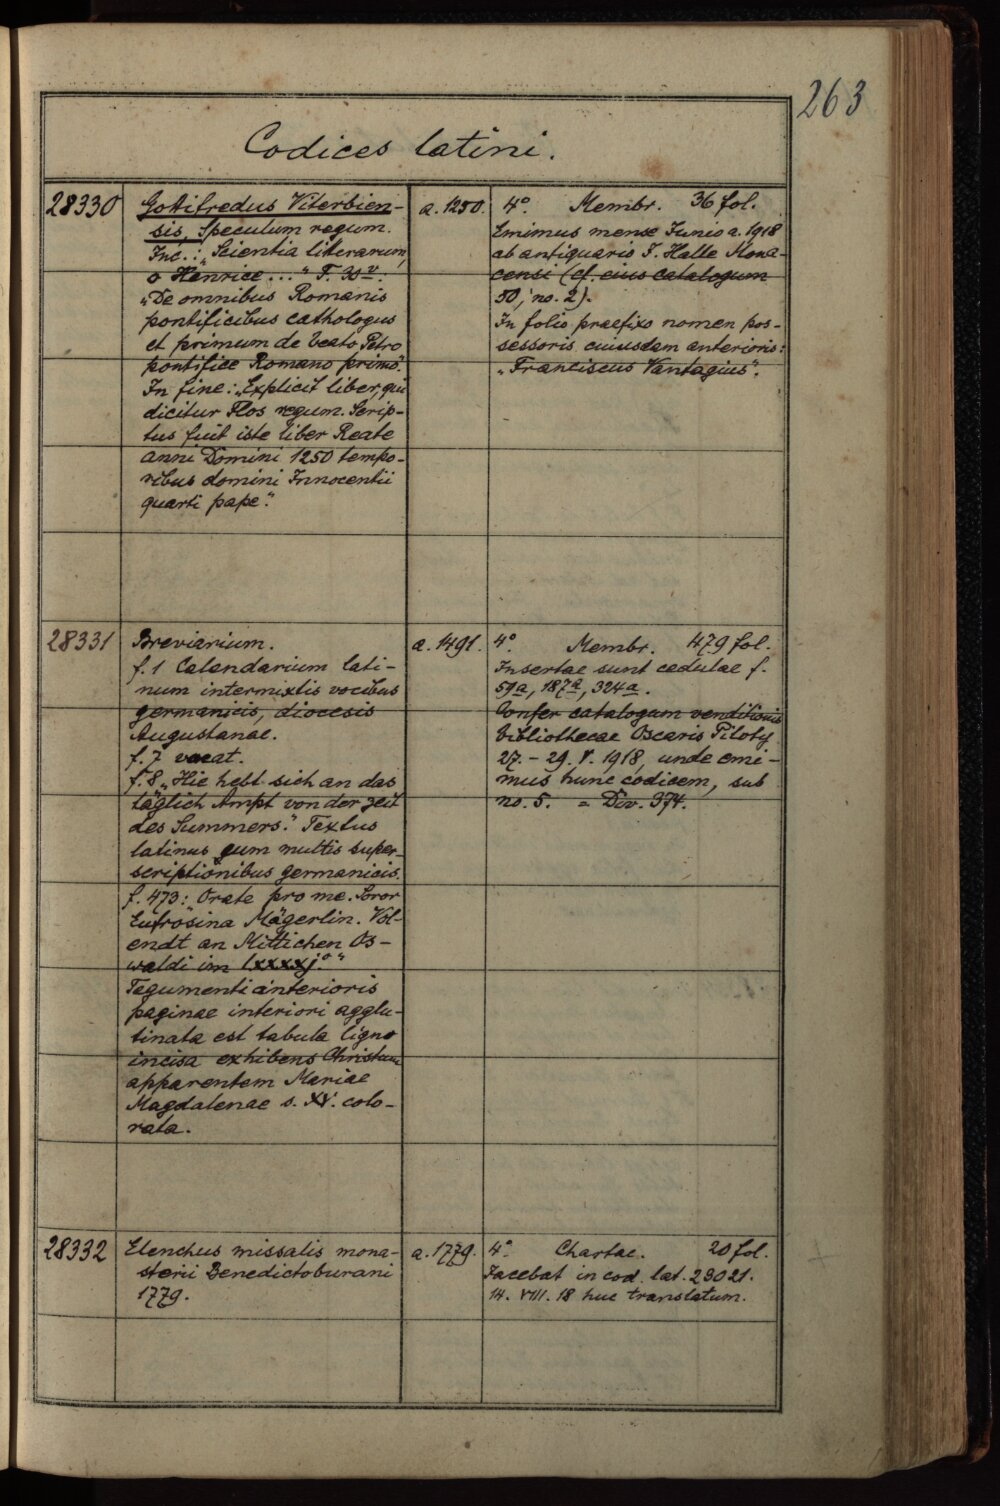 263
Codices latini.
28330
Gottifredus Viterbien-
sis, Speculum regum.
Inc.: „Scientia literarum,
o Henrice ... “ F. 30v:
„De omnibus Romanis
pontificibus cathologus
et primum de beato Petro
pontifice Romano primo“.
In fine: „Explicit liber, qui
dicitur Flos regum. Scrip-
tus fuit iste liber Reate
anni Domini 1250 tempo-
ribus domini Innocentii
quarti pape“.
a. 1250.
4°. Membr. 36 fol.
Emimus mense Junio a. 1918
ab antiquario J. Halle Mona-
censi (cf. eius catalogum
50, no. 2).
In folio praefixo nomen pos-
sessoris cuiusdam anterioris:
„Franciscus Vantagius“.
28331
Breviarium.
f. 1 Calendarium lati-
num intermixtis vocibus
germanicis, diocesis
Augustanae.
f. 7 vacat.
f. 8 „Hie hebt sich an das
täglich Ampt von der zeit
des Summers.“ Textus
latinus cum multis super-
scriptionibus germanicis.
f. 473: Orate pro me. Soror
Eufrosina Mägerlin. Vol-
endt an Mittichen Os-
waldi im lxxxxj°.“
Tegumenti anterioris
paginae interiori agglu-
tinata est tabula ligno
incisa exhibens Christum
apparentem Mariae
Magdalenae s. XV. colo-
rata.
a. 1491.
4° Membr. 479 fol.
Insertae sunt cedulae f.
59a, 187a, 324a.
Confer catalogum venditionis
bibliothecae Oscaris Piloty
27. - 29. V. 1918, unde emi-
mus hunc codicem, sub
no. 5. = Div. 974.
28332
Elenchus missalis mona-
sterii Benedictoburani
1779.
a. 1779.
4° Chartac. 20 fol.
Jacebat in cod. lat. 23021.
14. VIII. 18 huc translatum.